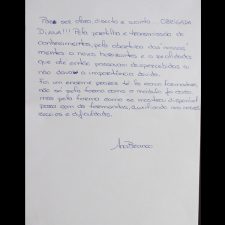 Para ser clara, directa e sucinta OBRIGADA
DIANA!!! Pela partilha e transmissão de
conhecimentos, pela abertura das nossas
mentes a novos horizontes e a realidades
que até então passavam despercebidas e
não dava a importância devida.
Foi um enorme prazer tê-la como formadora
não só pela forma como a
mas pela forma como se mostrou disponível
para com os formandos, auxiliando nos nossos
receios e dificuldades.
Ana Branco